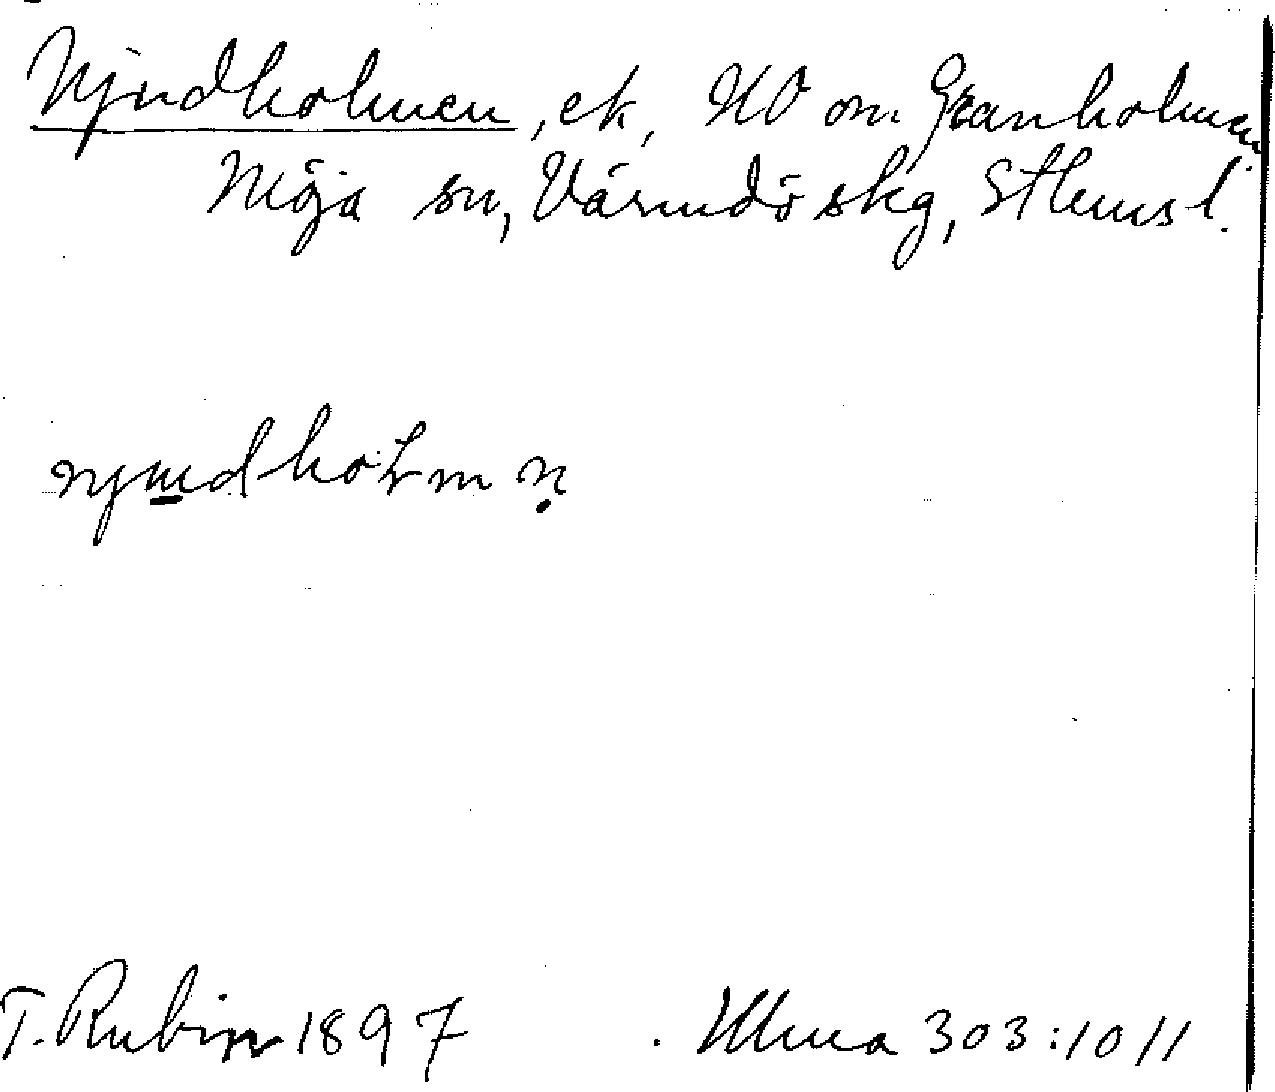 Njudholmen, ek, NO om Granholmen
Möja sn, Värmdö skg, Sthms l.
T. Rubin 1897 . Ulma 303:10 11